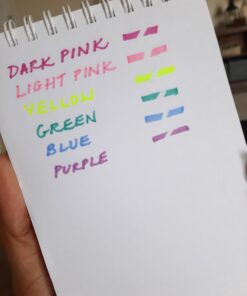 DARK PINK
LIGHT PINK
YELLOW
GREEN
BLUE
PURPLE